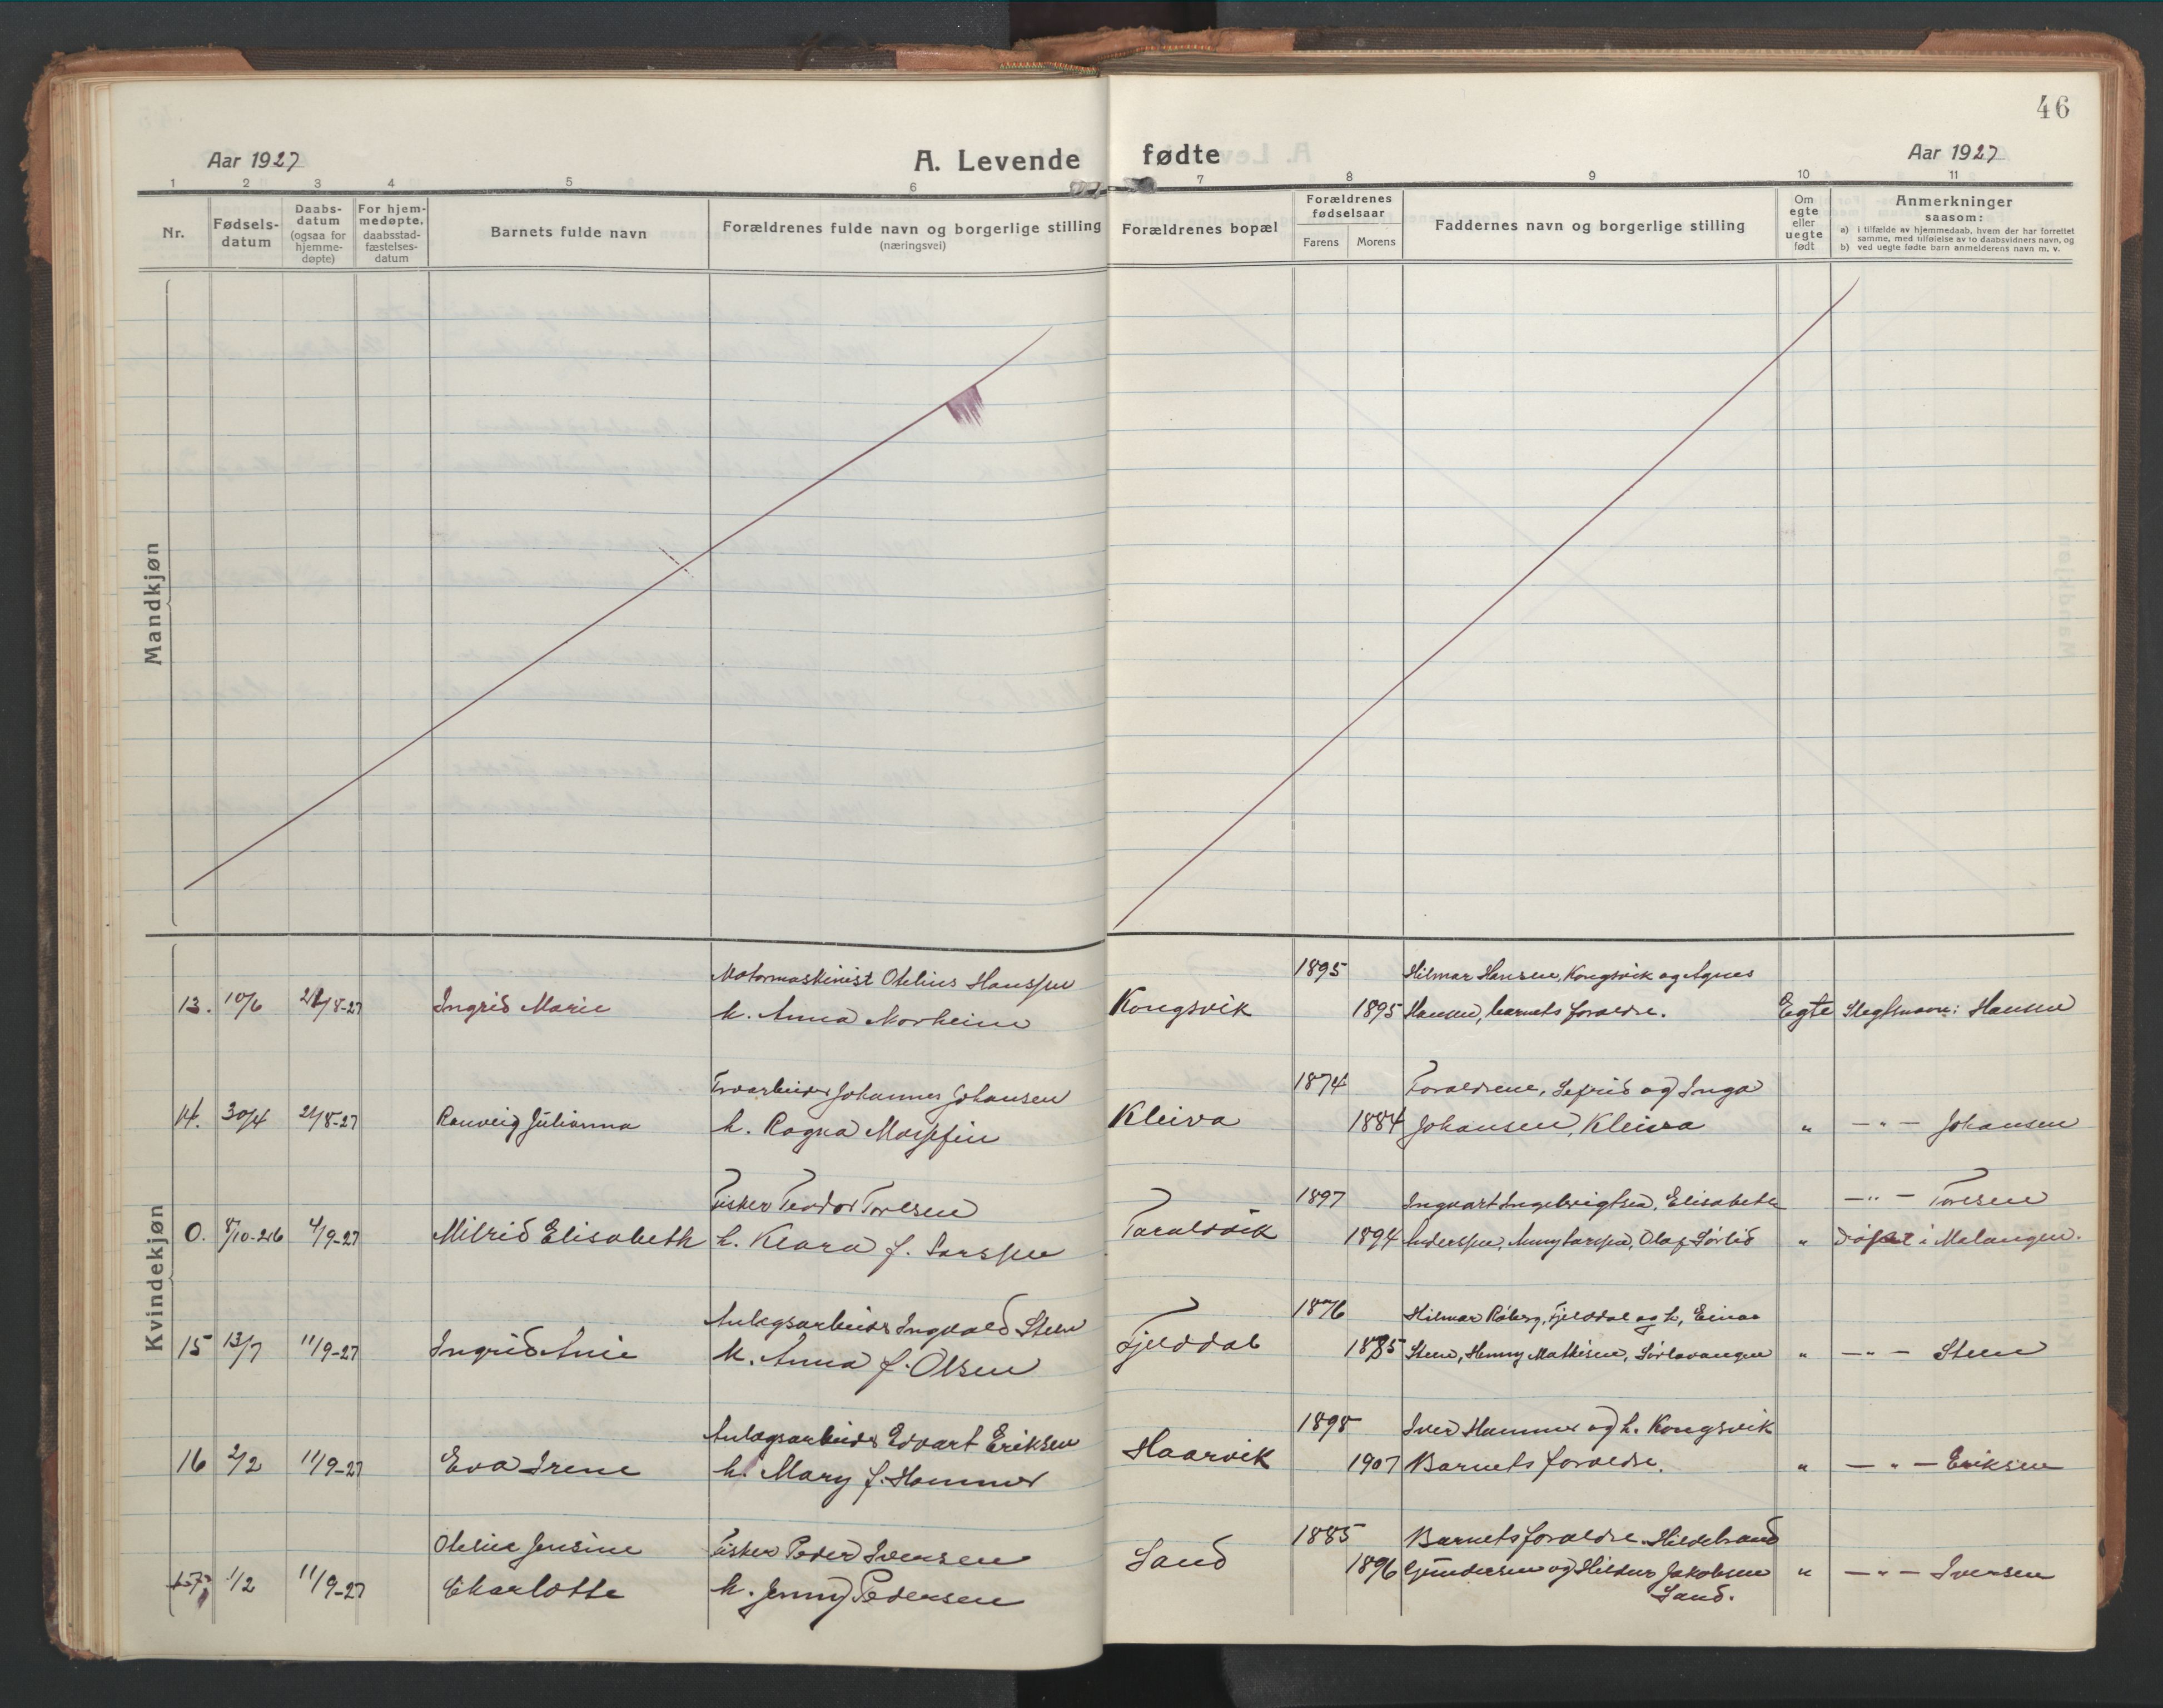 46
Aar 1927
A. Levende fødte
Aar 1927
1 2 3 4 5 6 7 8 9 10 11
Nr.
Fødsels-
datum
Daabs-
datum
(ogsaa for
hjemme-
døpte)
For hjem-
medøpte,
daabsstad-
fæstelses-
datum
Barnets fulde navn
Forældrenes fulde navn og borgerlige stilling
(næringsvei)
Forældrenes bopæl
Forældrenes
fødselsaar
Farens Morens
Faddernes navn og borgerlige stilling
Om
egte
eller
uegte
født
Anmerkninger
saasom:
a) i tilfælde av hjemmedaab, hvem der har forrettet
samme, med tilføielse av to daabsvidners navn, og
b) ved uegte fødte barn anmelderens navn m. v.
Mandkjøn
Kvindekjøn
Motormaskinist Otelius Hanssen 1895 Hilmar Hansen, Kongsvik og Agnes
13. 10/6 21/8-27 Ingrid Marie h. Anna Norheim Kongsvik 1895 Hansen, barnets foraldre. Egte Slegtsnavn: Hansen
Johannes Johansen 1874 Foraldrene, Sefrid og Inga
14. 30/4 21/8-27 Ranveig Julianna h. Ragna Kleiva 1884 Johansen, Kleiva " — " — Johansen
Fisker Teodor Toresen 1897 Ingvart Ingebrigtsen, Elisabeth — " — Toresen
0. 8/10-26 4/9-27 Milrid Elisabeth h. Klara f. Larssen Taraldvik 1894 Anderssen, Anny Larssen, Olaf Sørlid " døpt i Malangen.
Anlegsarbeider Ingvald Steen 1876 Hilmar Røberg, Fjelddal og h, Einar
15 13/7 11/9-27 Ingrid Anie h. Anna f. Olsen Fjelddal 1885 Steen, Henny Mathisen, Sørlavangen " — " — Steen
Anlægsarbeider Edvart Eriksen 1898 Iver Hammer og h. Kongsvik
16 2/2 11/9-27 Eva Irene h. Mary f. Hammer Haarvik 1907 Barnets foraldre. " — " — Eriksen
Otelie Jensine Fisker Peder Iversen Sand 1885 Barnets foraldre. Hildebrand
17, 1/2 11/9-27 Charlotte h. Jenny Pedersen 1896 Gundersen og Hildur Jakobsen " — " — Iversen
Sand.